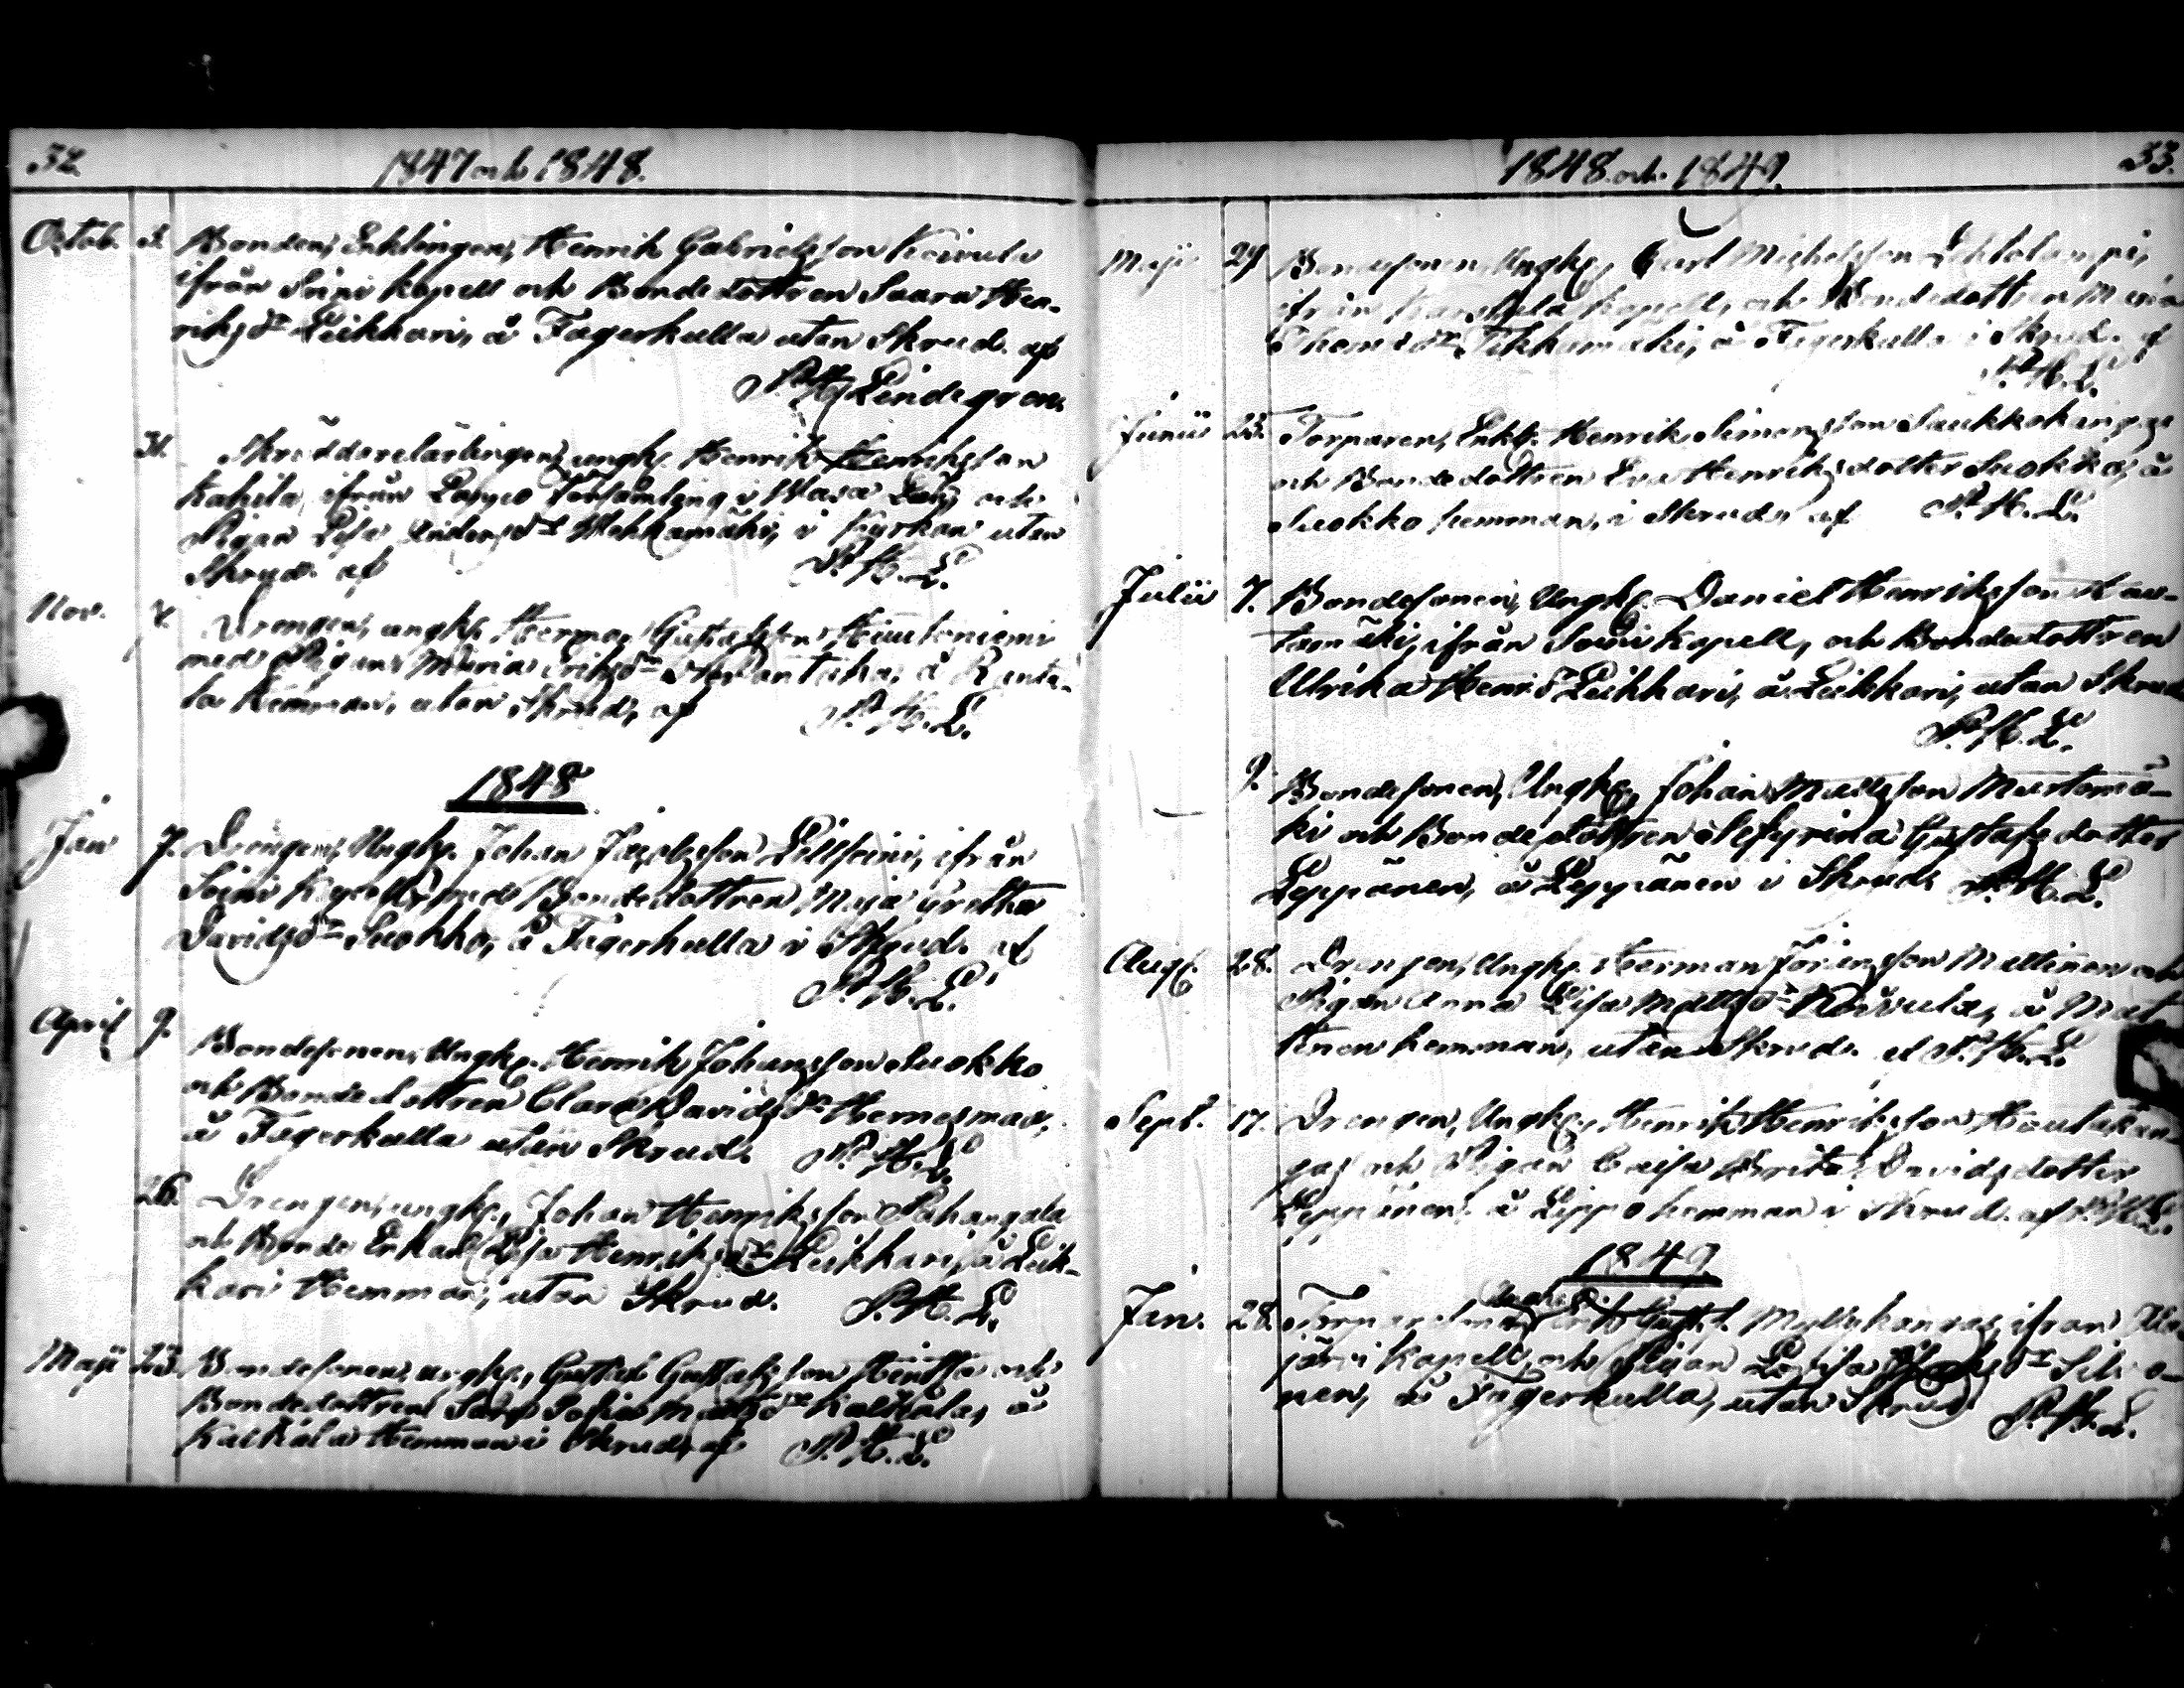 32.
1847 och 1848.
Octob. 3. Bonden, Enklingen, Henrik Gabrielsson Koivula
ifrån Soini kapell och Bondedottren Saara Hen-
riksdr Leikkari, å Fagerkulla utan Skrud. af
P. H. Lindegren.
31. Skräddarelärlingen, ungk. Henrik Henriksson
Kahila, ifrån Lappo Församling i Wasa Län, och
Pigan Lisa Andersdr Mehkamäki, i Kyrkan utan
Skrud. af P. H. L.
Nov. 7. Drengen, ungk. Herman Gustafsson
med Pigan Maria Eriksdr å Ranta-
la hemman, utan Skrud, af P. H. L.
1848
Jan 7. Drengen, Ungk. Johan Jacobsson Lillsoini, ifrån
Soini kapell, med Bondedottren Maja Gretha
Davidsdr Suokko, å Fagerkulla i Skrud. af
P. H. L.
April 9. Bondesonen, Ungk. Henrik Johansson Suokko
och Bondedottren Clara Davidsdr Hernesmaa,
å Fagerkulla utan Skrud. P. H. L.
26. Drengen, ungk., Johan Henriksson Pahangala
och Bonde Enkan Lisa Henriksdr Leikkari, å Leik-
kari Hemman, utan Skrud. P. H. L.
Maji 23. Bondesonen, ungk., Gustaf Gustafsson och
Bondedottren Sofia Mattsdr Kalkala, å
Kalkala Hemman i Skrud, af P. H. L.
1848. och. 1849.
33.
Maji 29 Bondesonen, Ungk., Carl Michelsson Lehtolampi,
ifrån Karstula Kapell, och Bondedottren Maria
Thomasdr å Fagerkulla i Skrud. af
P. H. L.
Junii 25. Torparen, Enkl. Henrik Simonsson Saukkokangas
och Bondedottren Eva Henriksdotter Suokko, å
Suokko hemman, i Skrud, af P. H. L.
Julii 7. Bondesonen, Ungk. Daniel Henriksson Kau-
tamäki, ifrån Soini kapell, och Bondedottren
Ulrika Henr.dr Leikkari, å Leikkari, utan Skrud
P. H. L.
9. Bondesonen, Ungk., Johan Mattsson Mustamä-
ki och Bondedottren Sefyrina Gustafsdotter
Leppänen, å Leppänen i Skrud. P. H. L.
Aug. 28. Drengen, Ungk. Herman Mattinen och
Pigan Anna Lisa Mattsdr Koivula, å Mat-
tinen hemman, utan Skrud. af P. H. L.
Sept. 17. Drengen, Ungk., Henrik Henriksson Hautakan-
gas och Pigan Caisa Brita Davidsdotter
Leppänen å Lippo hemman i Skrud. af P. H. L.
1849.
Jan. 28. Ungk. Myllykangas, ifrån Ala-
järvi Kapell, och Pigan Lovisa Sili o-
nen, å Fagerkulla, utan Skrud
P. H. L.